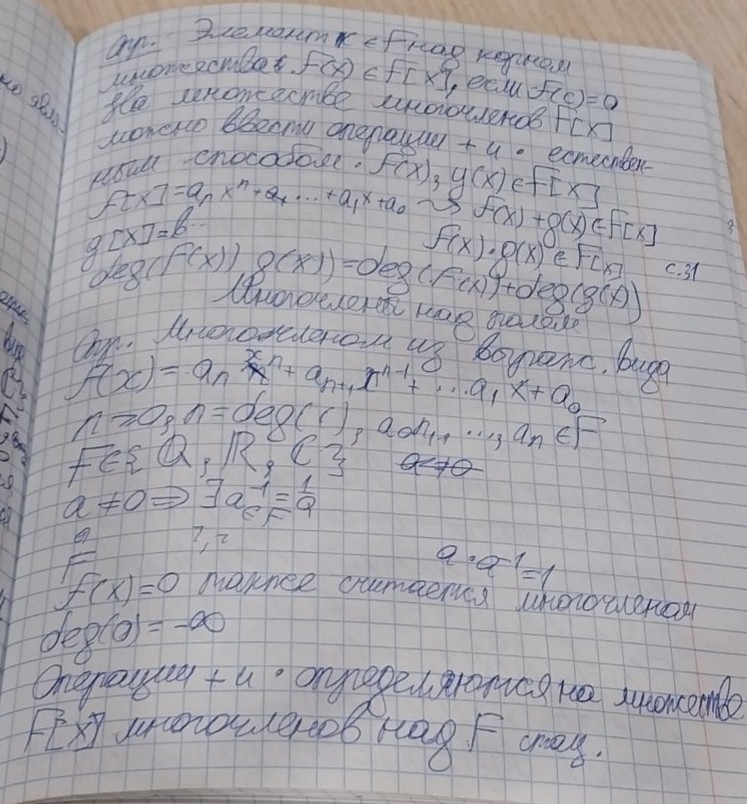 Опр. Элемент x ∈ F над корнем
множества f(x) ∈ F[x], если f(c)=0
На множестве многочленов F[x]
можно ввести операции + и · естествен-
ным способом. f(x), g(x) ∈ F[x]
f[x]=aₙxⁿ+a₊...+a₁x+a₀ ~> f(x)+g(x)∈F[x]
g[x]=b.. f(x)·g(x)∈F[x] с.31
deg(f(x)) g(x))=deg(f(x))+deg(g(x))
Многочлены над полем
Опр. Многочленом из выраж. вида
f(x)= aₙ xⁿ+ aₙ₊₁xⁿ⁻¹+ ...a₁ x+a₀
n≥0, n=deg(f), ..., aₙ ∈F
F∈{Q, R, C}
a≠0 => ∃a⁻¹=1/a
∈F
F ?,? a·a⁻¹=1
f(x)=0 также считается многочленом
deg(0)=-∞
Операции + и · определяются на множестве
F[x] многочленов над F стац.